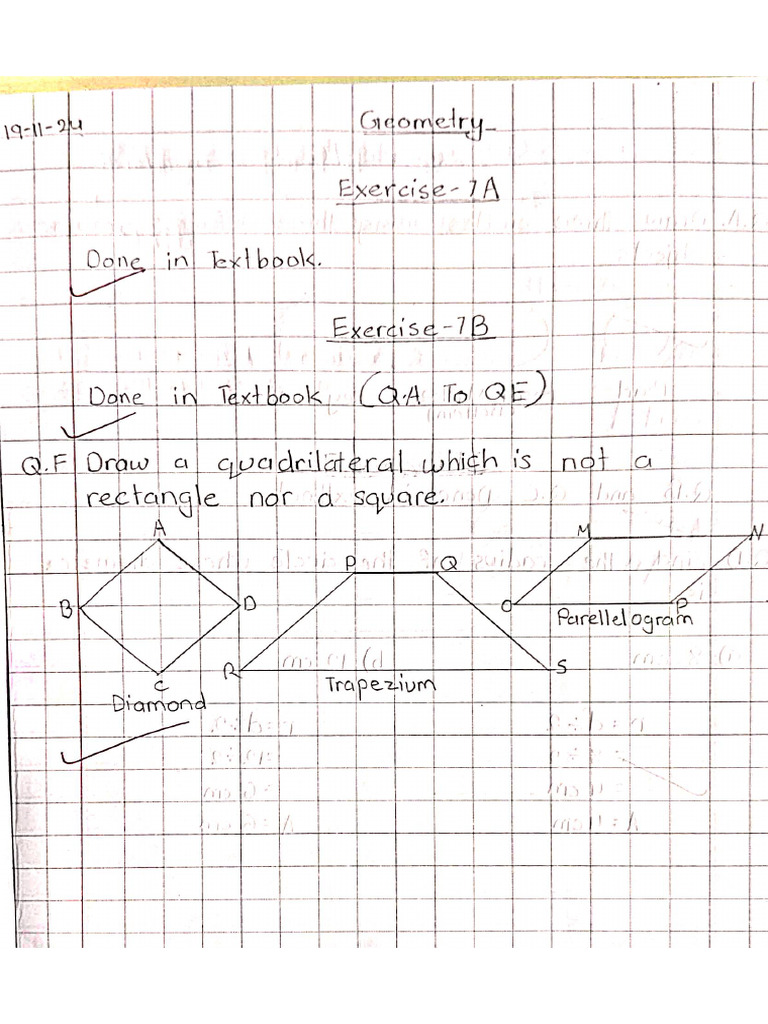 19-11-24
Geometry
Exercise-7A
Done in Textbook.
Exercise-7B
Done in Textbook (Q.A To QE)
Q.F Draw a quadrilateral which is not a
rectangle nor a square.
A
B
D
C
Diamond
P
Q
R
S
Trapezium
M
N
O
P
Parellelogram